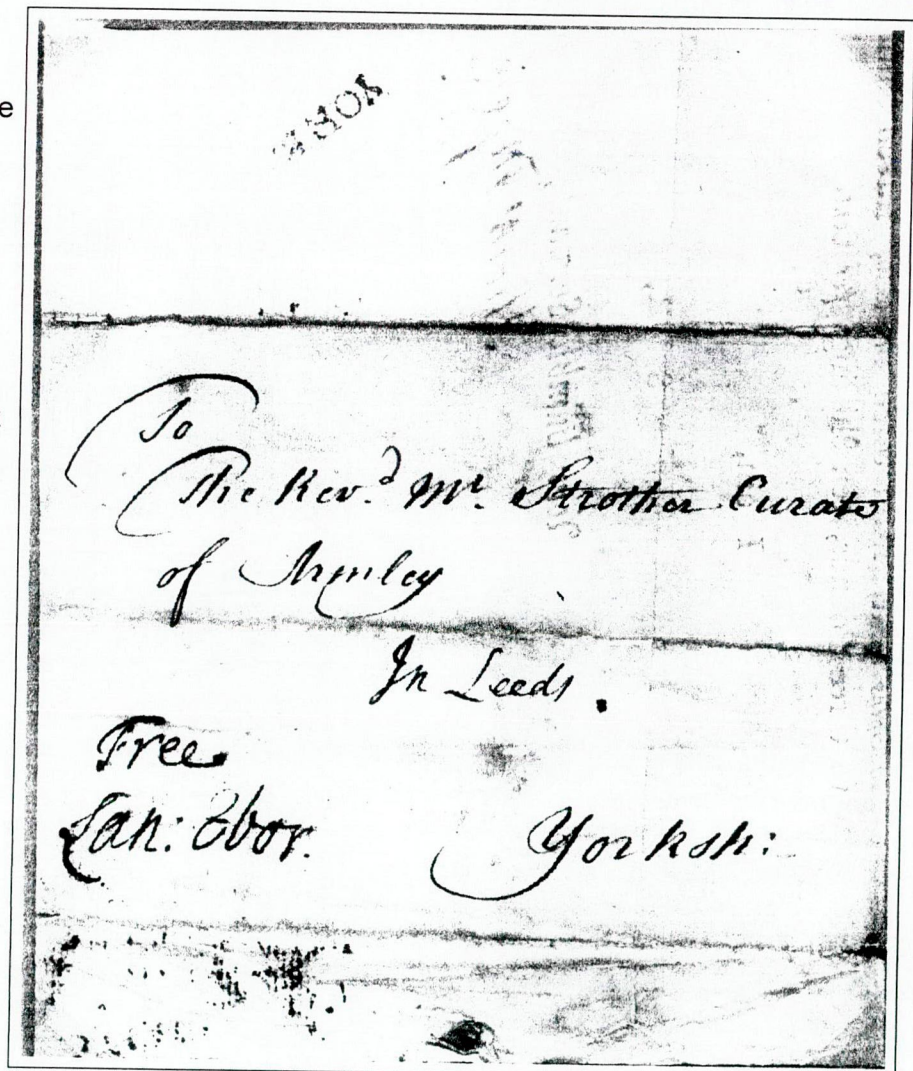 e
YORK
To
The Revd. Mr. Strother Curate
of Armley
In Leeds.
Free
Lan: Ebor.
Yorksh: